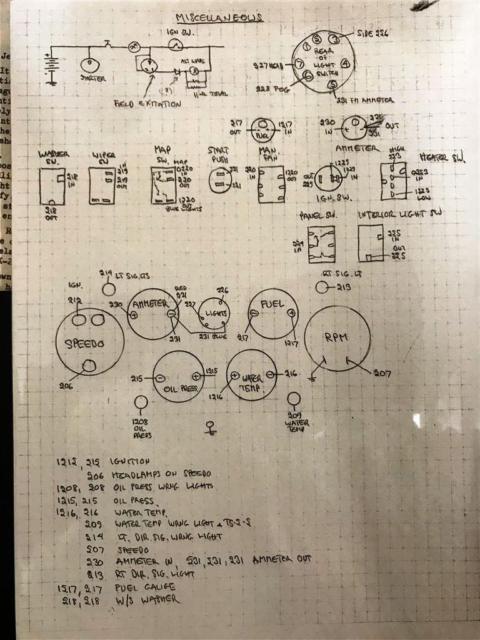 MISCELLANEOUS
IGN SW.
STARTER
FIELD EXITATION
SIDE 226
REAR
OF
LIGHT
SWITCH
227 HEAD
228 FOG
231 FM AMMETER
217
OUT
1217
IN
FUEL
230
IN
OUT
231
WASHER
SW.
218
IN
218
OUT
WIPER
SW.
219
MAP
SW.
MAP
0220
IN
1220
OUT
BLUE LIGHTS
START
PUSH
221
221
MAN.
FAN
1220
OUT
AMMETER
IGN. SW.
HIGH
223
HEATER SW.
LOW
PANEL SW.
224
IN
INTERIOR LIGHT SW
225
IN
OUT
225
214
LT SIG. LTS
RT SIG. LT
213
IGN.
212
SPEEDO
206
AMMETER
230
RED
231
231
231 BLUE
227
226
LIGHTS
FUEL
217
1217
RPM
207
215
1215
OIL PRESS
WATER
TEMP.
216
1216
1208
OIL
PRESS
209
WATER
TEMP
1212, 212 IGNITION
206 HEADLAMPS ON SPEEDO
1208, 208 OIL PRESS WRNG LIGHTS
1215, 215 OIL PRESS.
1216, 216 WATER TEMP.
209 WATER TEMP WRNG LIGHT + TS-2-S
214 LT. DIR. SIG. WRNG LIGHT
207 SPEEDO
230 AMMETER IN, 231, 231, 231 AMMETER OUT
213 RT DIR. SIG. LIGHT
1217, 217 FUEL GAUGE
218, 218 W/S WASHER